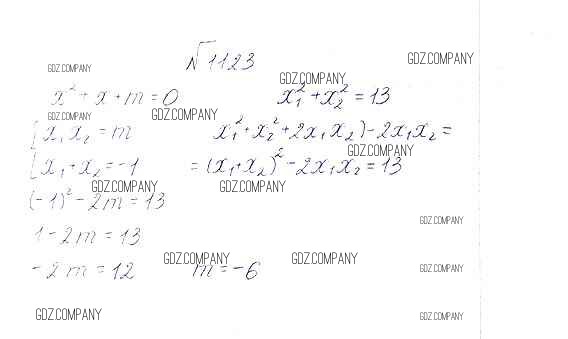 № 1123
GDZ.COMPANY GDZ.COMPANY
GDZ.COMPANY
x² + x + m = 0 x₁² + x₂² = 13
GDZ.COMPANY GDZ.COMPANY
[x₁x₂ = m x₁² + x₂² + 2x₁x₂) - 2x₁x₂ =
GDZ.COMPANY
[x₁ + x₂ = -1 = (x₁ + x₂)² - 2x₁x₂ = 13
GDZ.COMPANY GDZ.COMPANY
(-1)² - 2m = 13
GDZ.COMPANY
1 - 2m = 13
GDZ.COMPANY GDZ.COMPANY
-2m = 12 m = -6
GDZ.COMPANY
GDZ.COMPANY GDZ.COMPANY